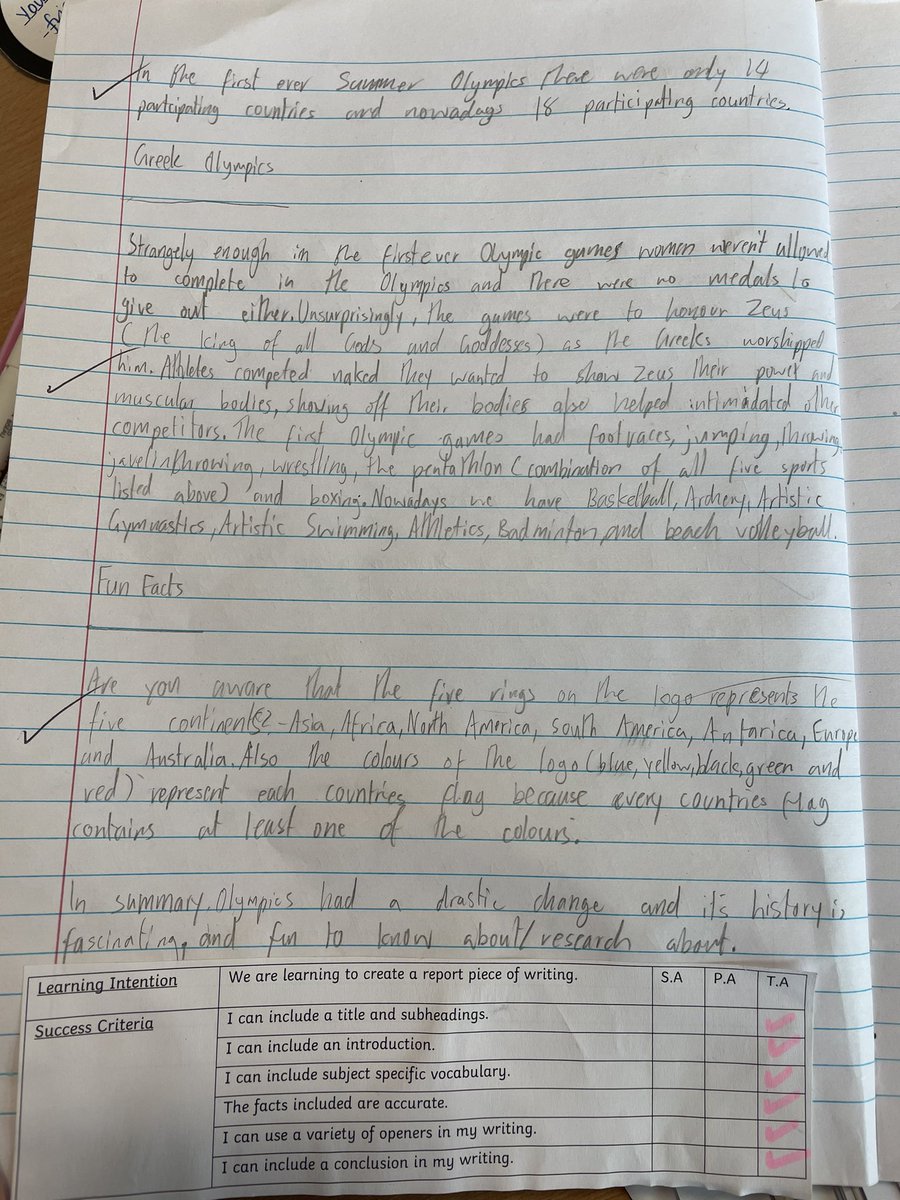 In the first ever Summer Olympics there were only 14
participating countries and nowadays 18 participating countries.
Greek Olympics
Strangely enough in the first ever Olympic games women weren't allowed
to complete in the Olympics and there were no medals to
give out either. Unsurprisingly, the games were to honour Zeus
(the king of all Gods and Goddesses) as the Greeks worshipped
him. Athletes competed naked they wanted to show Zeus their power and
muscular bodies, showing off their bodies also helped intimadated other
competitors. The first Olympic games had footraces, jumping, throwing,
javelin throwing, wrestling, the pentathlon (combination of all five sports
listed above) and boxing. Nowadays we have Basketball, Archery, Artistic
Gymnastics, Artistic Swimming, Athletics, Badminton, and beach volleyball.
Fun Facts
Are you aware that the five rings on the logo represents the
five continents?-Asia, Africa, North America, south America, Antarica, Europe
and Australia. Also the colours of the logo (blue, yellow, black, green and
red) represent each countries flag because every countries flag
contains at least one of the colours.
In summary, Olympics had a drastic change and it's history is
fascinating, and fun to know about/research about.
Learning Intention We are learning to create a report piece of writing. S.A P.A T.A
Success Criteria I can include a title and subheadings.
I can include an introduction.
I can include subject specific vocabulary.
The facts included are accurate.
I can use a variety of openers in my writing.
I can include a conclusion in my writing.